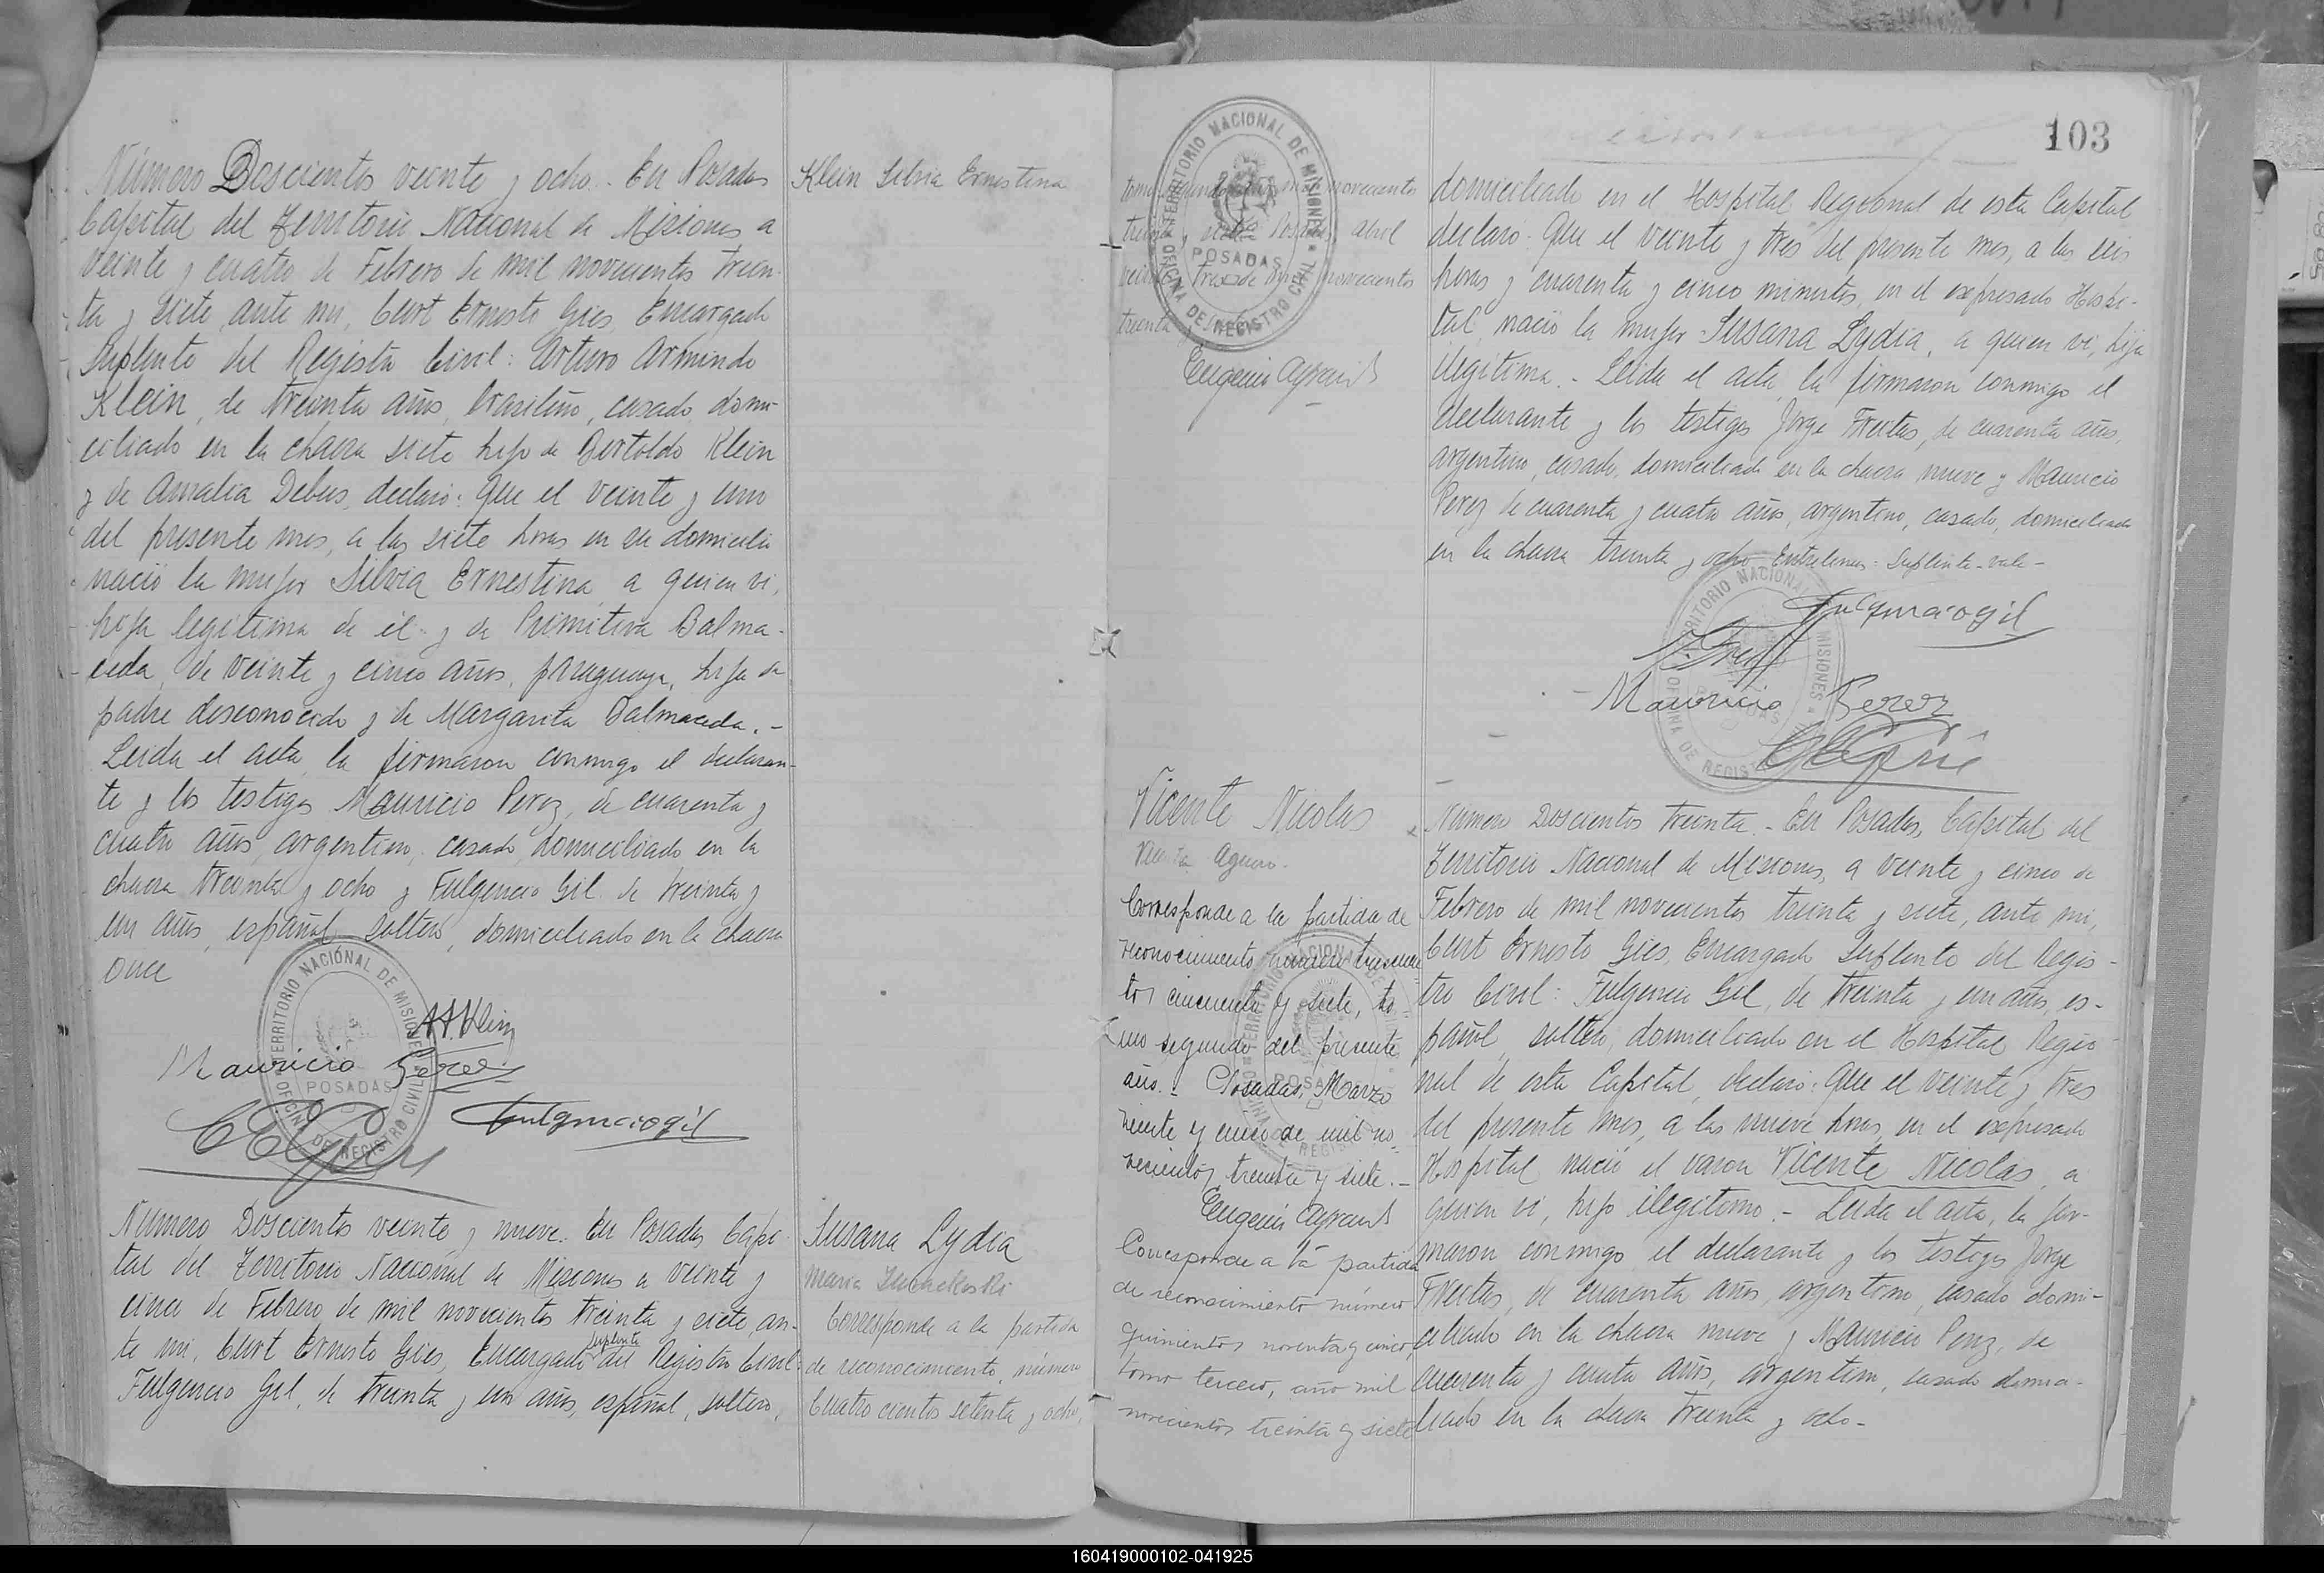 Número Doscientos veinte y ocho.- En Posadas
Capital del Territorio Nacional de Misiones a
veinte y cuatro de Febrero de mil novecientos trein-
ta y siete, ante mi, Curt Ernesto Gies, Encargado
Suplente del Registro Civil: Arturo Armindo
Klein, de treinta años, brasileño, casado, domi-
ciliado en la chacra siete hijo de Bertoldo Klein
y de Amalia Debus, declaró: Que el veinte y uno
del presente mes, a las siete horas en su domicilio
nació la mujer Silvia Ernestina, a quien vi,
hija legitima de él y de Primitiva Balma-
ceda, de veinte y cinco años, paraguaya, hija de
padre desconocido y de Margarita Balmaceda.-
Leida el acta, la firmaron conmigo el declaran-
te y los testigos Mauricio Perez, de cuarenta y
cuatro años, argentino, casado, domiciliado en la
chacra treinta y ocho y Fulgencio Gil de treinta y
un años, español, soltero, domiciliado en la chacra
once
A. A. Klein
Mauricio Perez
Fulgencio Gil
CEGies
OFICINA DE REGISTRO CIVIL
TERRITORIO NACIONAL DE MISIONES
POSADAS
Klein Silvia Ernestina
Número Doscientos veinte y nueve. En Posadas Capi-
tal del Territorio Nacional de Misiones a veinte y
cinco de Febrero de mil novecientos treinta y siete, an-
te mi, Curt Ernesto Gies, Encargado suplente del Registro Civil:
Fulgencio Gil, de treinta y un años, español, soltero,
Susana Lydia
Maria
Corresponde a la partida
de reconocimiento, número
Cuatrocientos setenta y ocho,
103
tomo segundo mil novecientos
treinta y siete Posadas, abril
veinte y tres de mil novecientos
treinta y siete
Eugenio
TERRITORIO NACIONAL DE MISIONES
POSADAS
OFICINA DE REGISTRO CIVIL
domiciliado en el Hospital Regional de esta Capital
declaró: Que el veinte y tres del presente mes, a las seis
horas y cuarenta y cinco minutos, en el expresado Hospi-
tal, nació la mujer Susana Lydia, a quien vi, hija
ilegitima.- Leida el acta, la firmaron conmigo el
declarante y los testigos Jorge Freitas, de cuarenta años,
argentino, casado, domiciliado en la chacra nueve y Mauricio
Perez de cuarenta y cuatro años, argentino, casado, domiciliado
en la chacra treinta y ocho Entrelineas: Suplente-vale-
Fulgencio Gil
Mauricio Perez
CEGies
Vicente Nicolas
Vicenta Aguero.
Corresponde a la partida de
reconocimiento número trescien
tos cincuenta y siete, to-
mo segundo del presente
año.- Posadas, Marzo
veinte y cinco de mil no-
vecientos treinta y siete.-
Eugenio
Corresponde a la partida
de reconocimiento número
quinientos noventa y cinco,
tomo tercero, año mil
novecientos treinta y siete
Número Doscientos treinta.- En Posadas, Capital del
Territorio Nacional de Misiones, a veinte y cinco de
Febrero de mil novecientos treinta y siete, ante mi,
Curt Ernesto Gies, Encargado Suplente del Regis-
tro Civil: Fulgencio Gil, de treinta y un años, es-
pañol, soltero, domiciliado en el Hospital Regio
nal de esta Capital, declaró: Que el veinte y tres
del presente mes, a las nueve horas, en el expresado
Hospital nació el varon Vicente Nicolas, a
quien vi, hijo ilegitimo.- Leida el acta, la fir-
maron conmigo el declarante y los testigos Jorge
Freitas, de cuarenta años, argentino, casado domi-
ciliado en la chacra nueve y Mauricio Perez, de
cuarenta y cuatro años, argentino, casado domici-
liado en la chacra treinta y ocho-
160419000102-041925